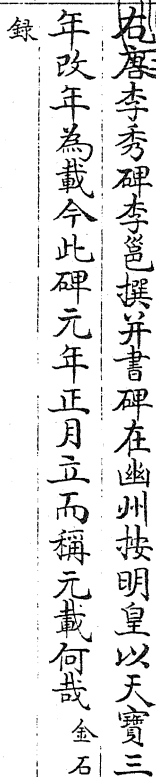 右唐李秀碑李邕撰并書碑在幽州按明皇以天寶三
年改年為載今此碑元年正月立而稱元載何哉金石
録